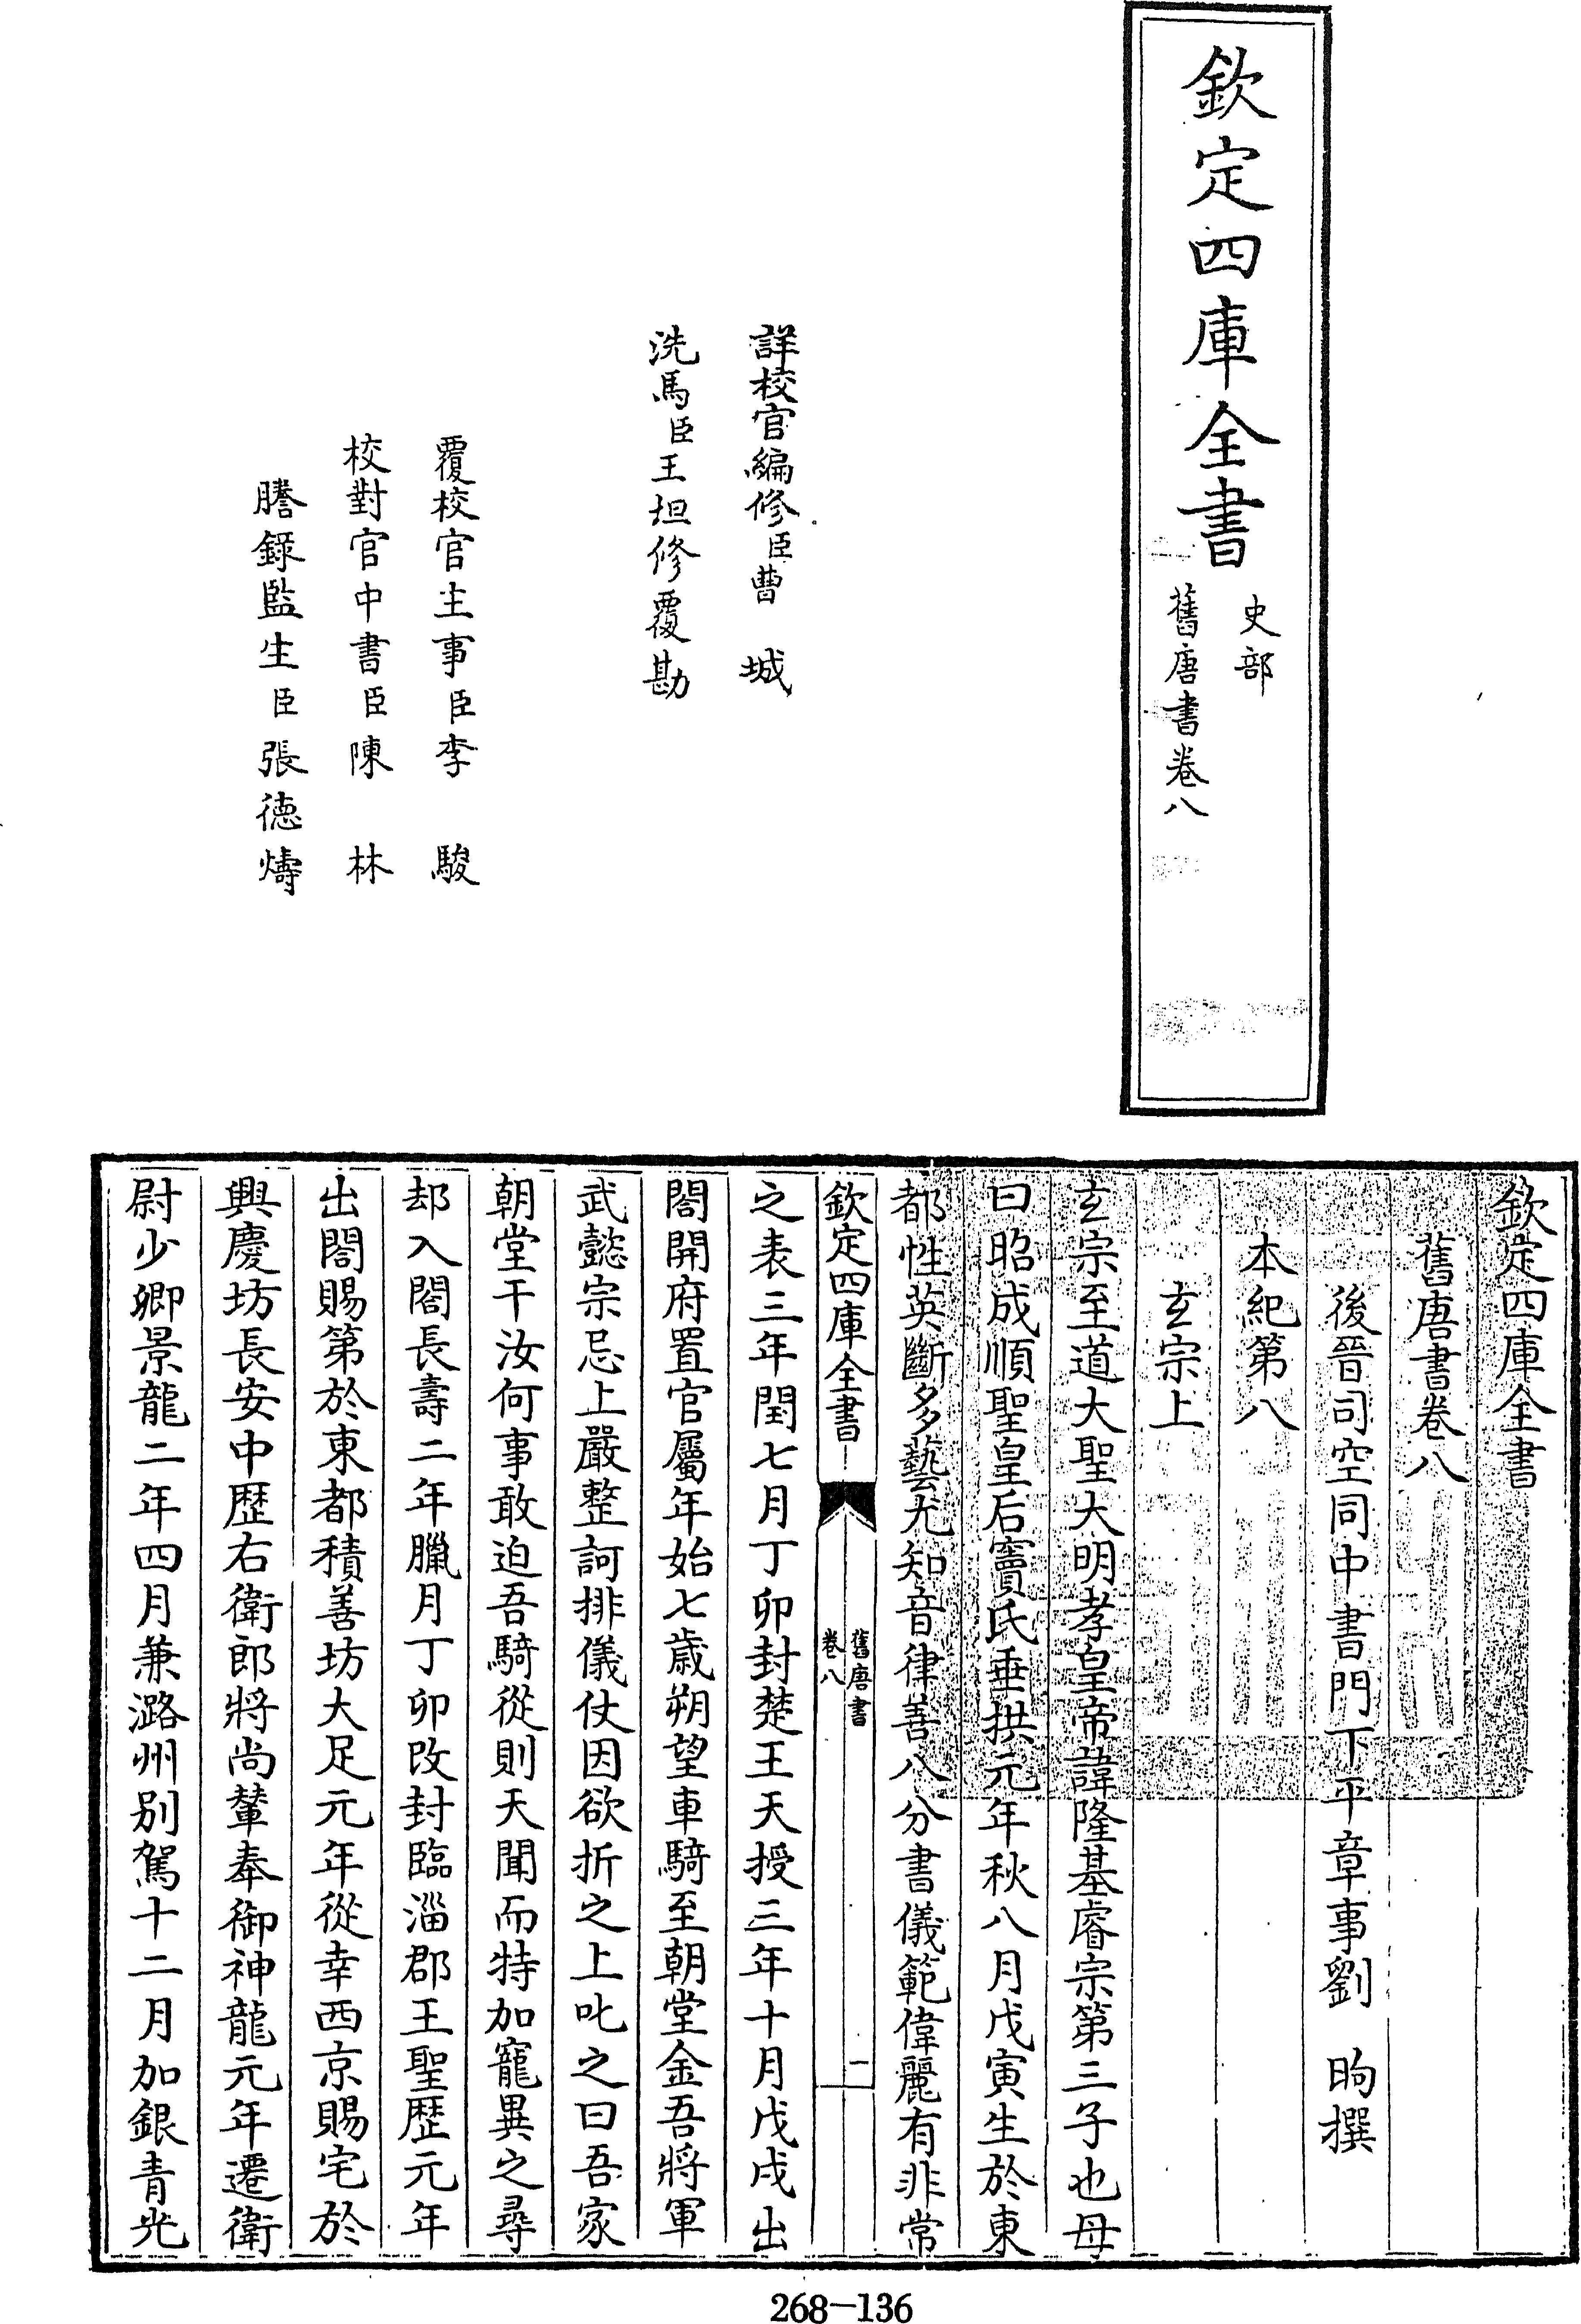 欽定四庫全書
史部
舊唐書卷八
詳校官編修臣曹 城
洗馬臣王坦修覆勘
覆校官主事臣李 駿
校對官中書臣陳 林
謄錄監生臣張德燽
欽定四庫全書
舊唐書卷八
後晉司空同中書門下平章事劉 昫撰
本紀第八
玄宗上
玄宗至道大聖大明孝皇帝諱隆基睿宗第三子也母
曰昭成順聖皇后竇氏垂拱元年秋八月戊寅生於東
都性英斷多藝尤知音律善八分書儀範偉麗有非常
欽定四庫全書
舊唐書
卷八
一
之表三年閏七月丁卯封楚王天授三年十月戊戌出
閤開府置官屬年始七歲朔望車騎至朝堂金吾將軍
武懿宗忌上嚴整訶排儀仗因欲折之上叱之曰吾家
朝堂干汝何事敢迫吾騎從則天聞而特加寵異之尋
却入閤長壽二年臘月丁卯改封臨淄郡王聖歷元年
出閤賜第於東都積善坊大足元年從幸西京賜宅於
興慶坊長安中歷右衛郎將尚輦奉御神龍元年遷衛
尉少卿景龍二年四月兼潞州別駕十二月加銀青光
268-136